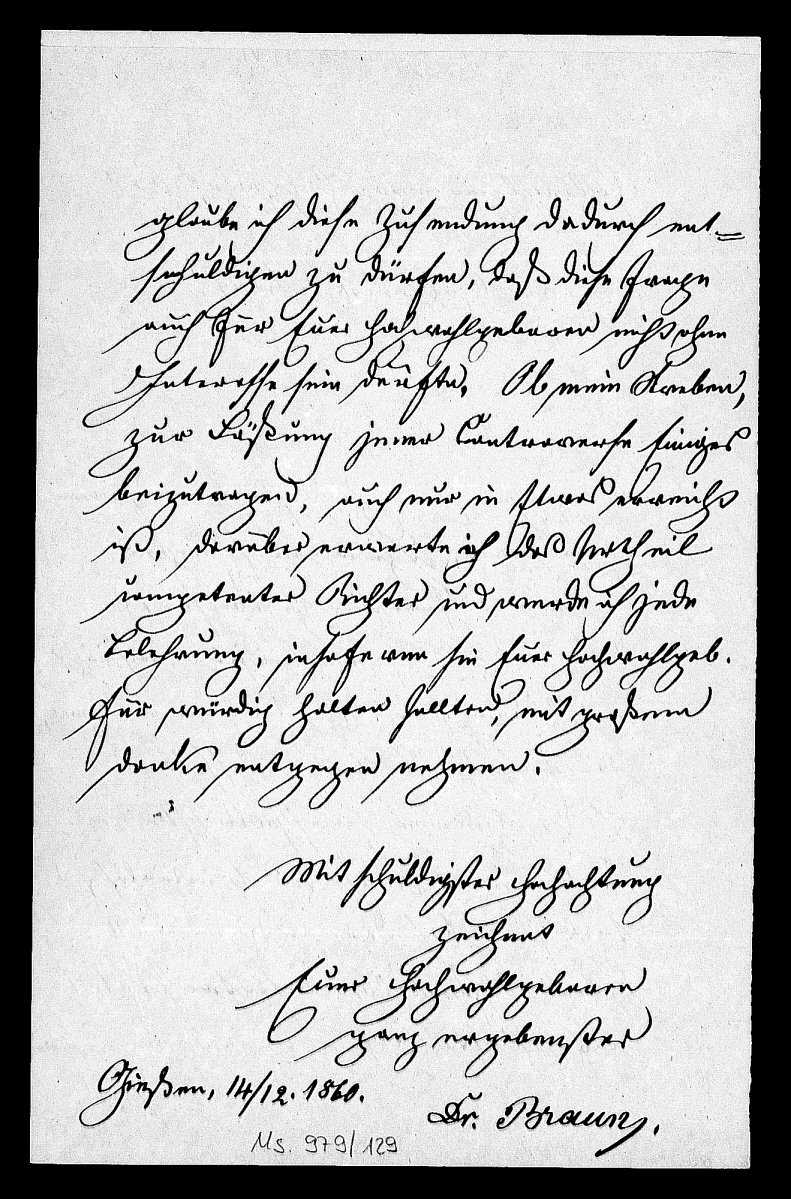 glaube ich diese Zusendung dadurch ent=
schuldigen zu dürfen, daß diese Frage
auch für Euer Hochwohlgeboren nicht ohne
Interesse sein dürfte. Ob mein Streben,
zur Lößung jener Controverse Einiges
beizutragen, auch nur in Etwas erreicht
ist, darüber erwarte ich das Urtheil
competenter Richter und werde ich jede
Belehrung, insoferne sie Euer Hochwohlgeb.
für würdig halten sollten, mit großem
Danke entgegen nehmen.
Mit schuldigster Hochachtung
zeichnet
Euer Hochwohlgeboren
ganz ergebenster
Gießen, 14/12. 1860.
Dr. Braun.
Ms. 979/129